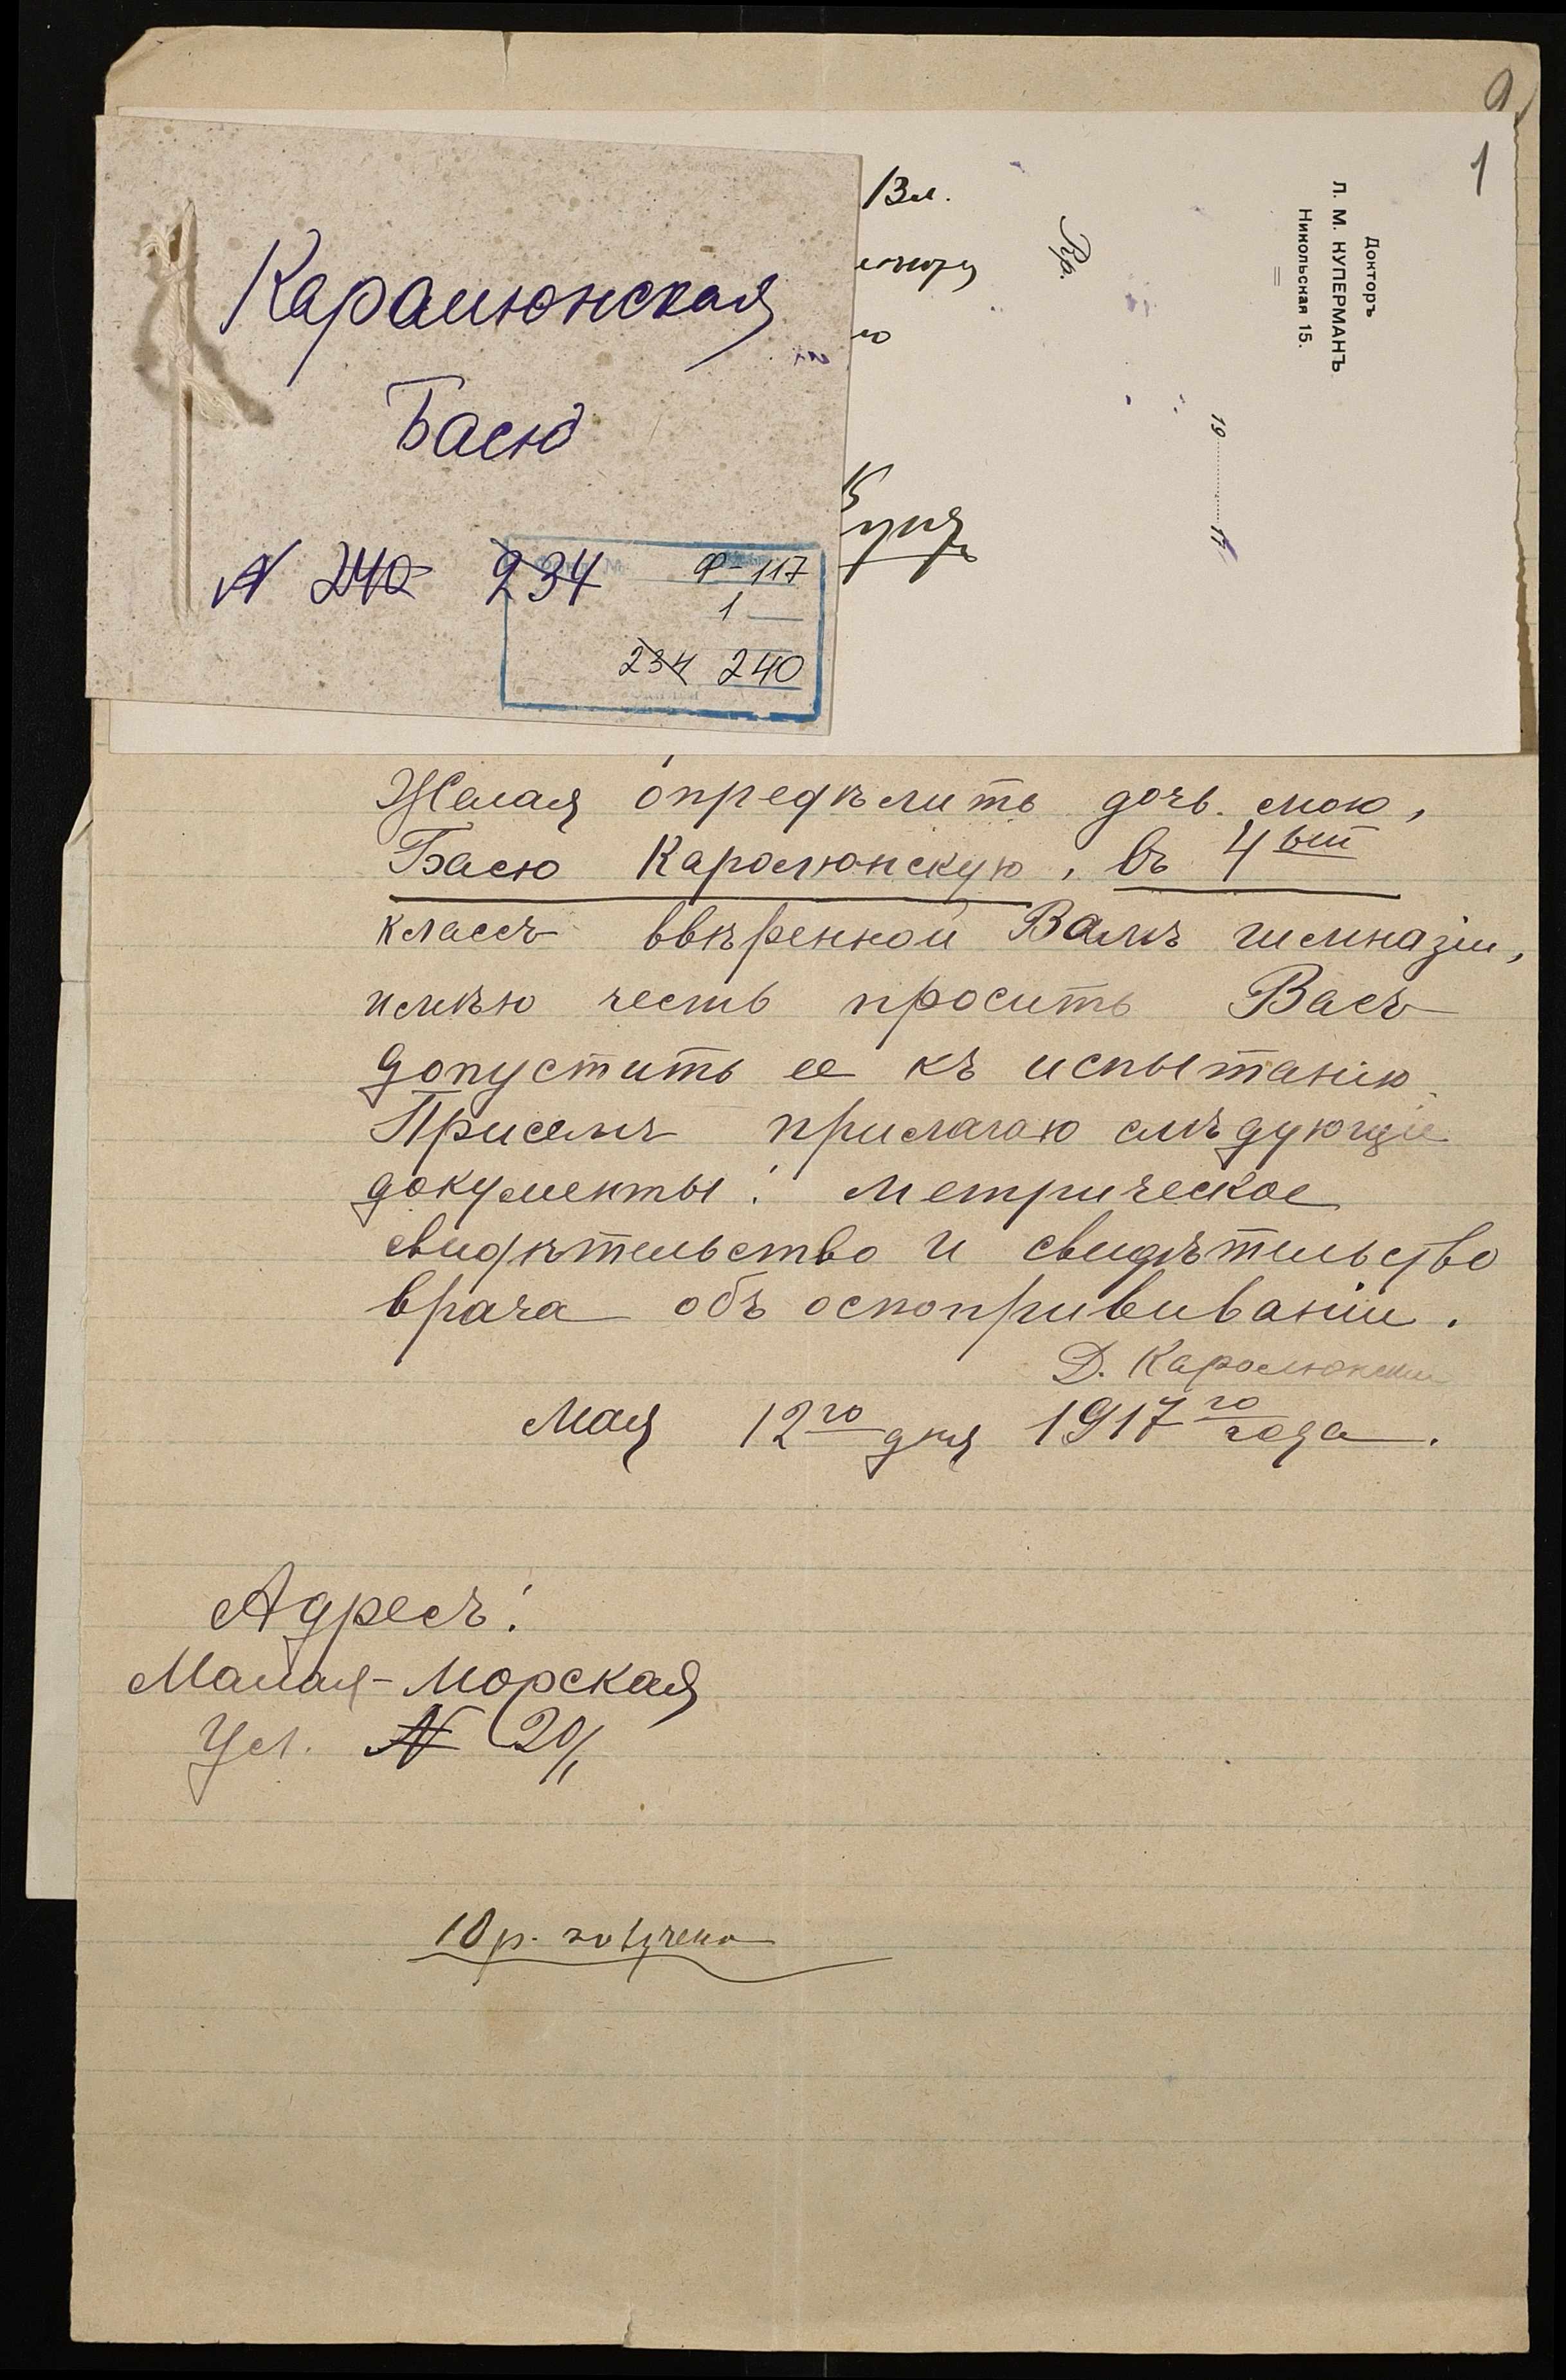 1
Карамюнская
Бася
N 240 234
Ф-117
1
234 240
Докторъ
Л. М. КУПЕРМАНЪ
Никольская 15.
19
Rp.
Желая опредѣлить дочь мою,
Басю Каромюнскую, въ 4ый
классъ ввѣренной Вамъ гимназіи,
имѣю честь просить Васъ
допустить ее къ испытанію.
Присемъ прилагаю слѣдующіе
документы: метрическое
свидѣтельство и свидѣтельство
врача объ оспопрививаніи.
Д. Каромюнскій
Мая 12го дня 1917го года.
Адресъ:
Малая-Морская
Ул. N 20/1
10 р. получено